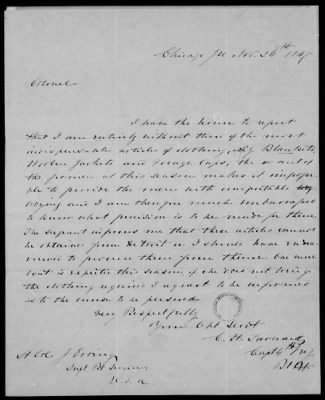 Chicago Ill Nov. 26th 184
Colonel
I have the honor to report
that I am entirely without three of the most
indispensable articles of clothing, viz, Blankets,
Woolen Jackets and Forage Caps, the want of
the former at this season makes it impossi-
ble to provide the men with comfortable
and I am therefore much embarrassed
to know what provision is to be made for them.
The Sergeant informs me that these articles cannot
be obtained from Detroit or I should have
to procure them from thence. One more
boat is expected this season, if she does not bring
the clothing required I request to be informed
as to the course to be pursued.
Very Respectfully
Your Obt Servt
Capt 4th Inf
Lt Col J Erving
Supt
U.S.A